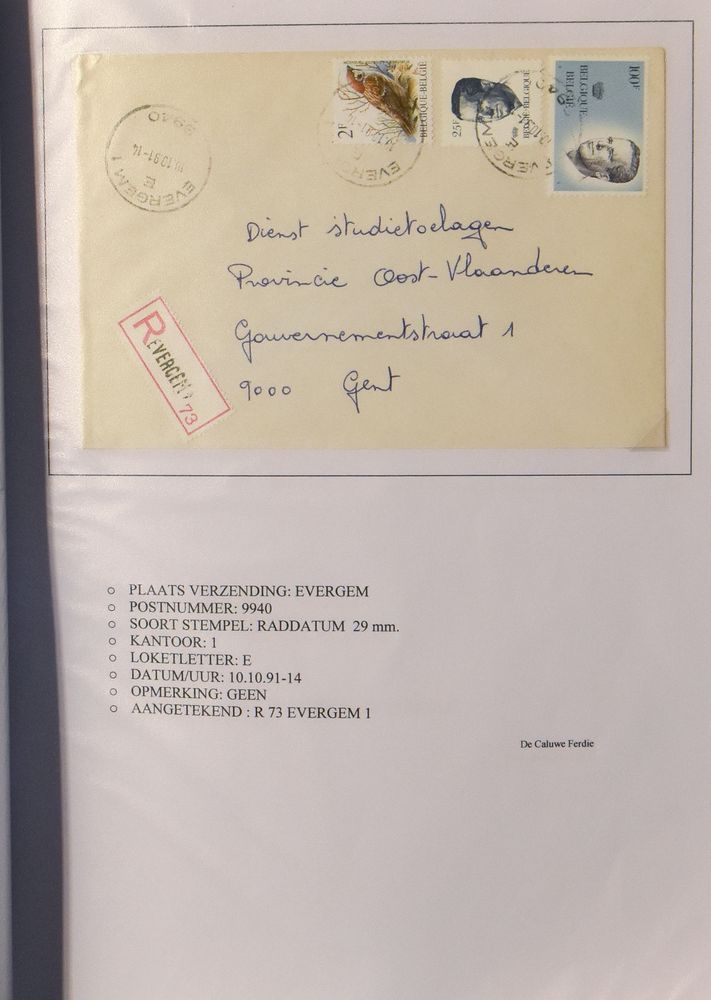 2F
BELGIQUE-BELGIË
25F
BELGIË-BELGIQUE
100F
BELGIQUE
BELGIË
9940
10.10.91-14
E
EVERGEM 1
Dienst studietoelagen
Provincie Oost-Vlaanderen
Gouvernementstraat 1
9000 Gent
R
EVERGEM 1
73
PLAATS VERZENDING: EVERGEM
POSTNUMMER: 9940
SOORT STEMPEL: RADDATUM 29 mm.
KANTOOR: 1
LOKETLETTER: E
DATUM/UUR: 10.10.91-14
OPMERKING: GEEN
AANGETEKEND : R 73 EVERGEM 1
De Caluwe Ferdie